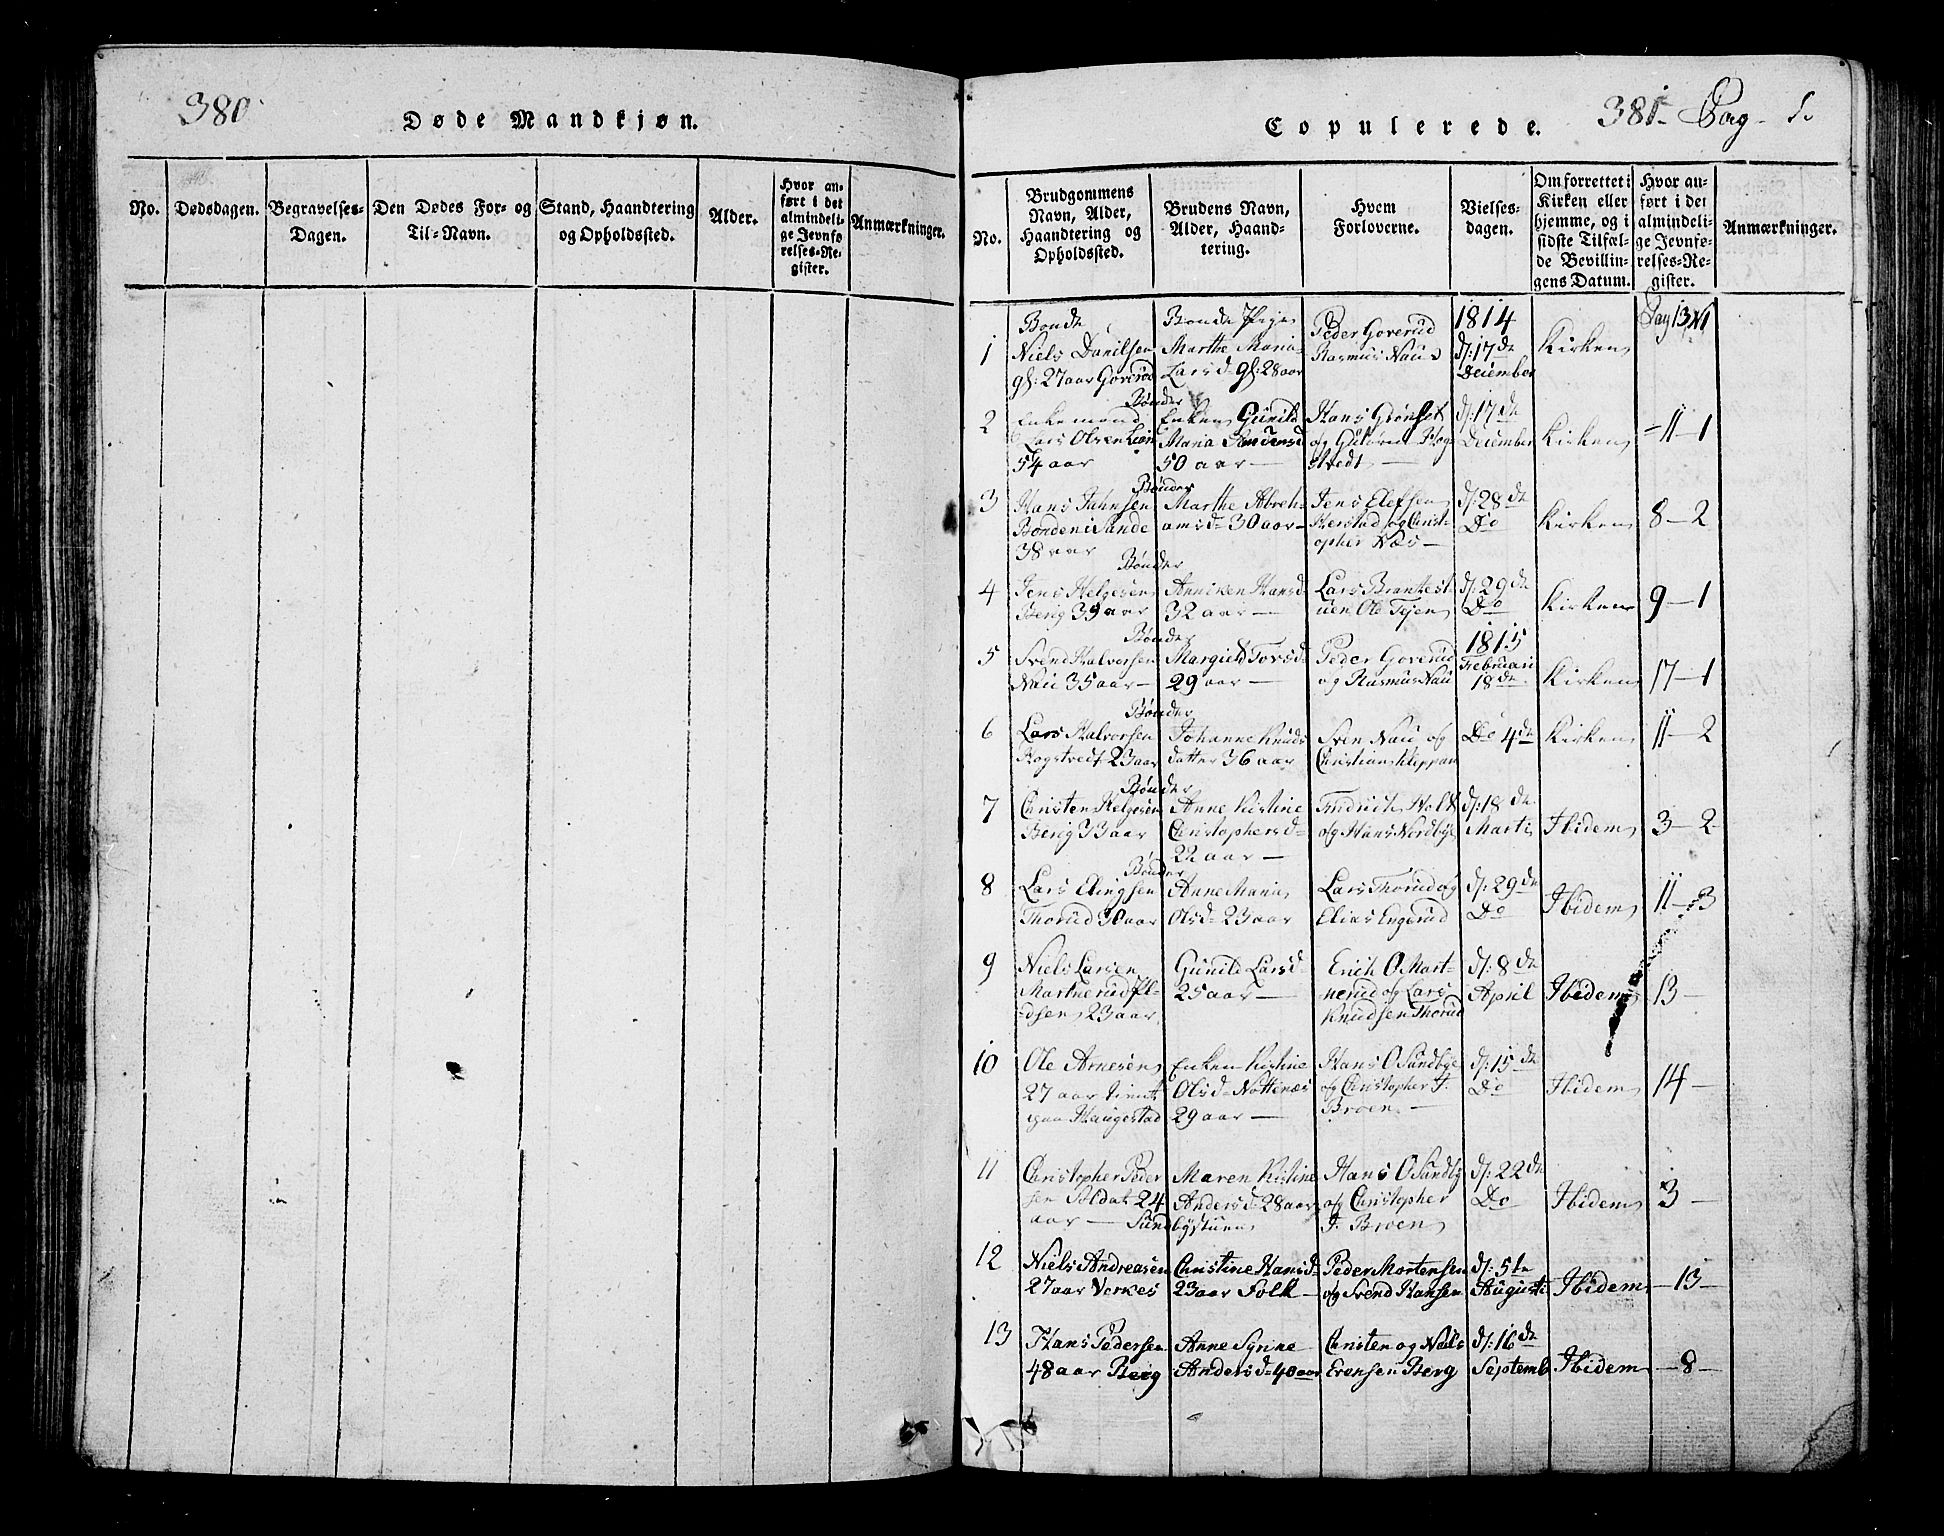 380
Døde Mandkjøn.
No.
Dødsdagen.
Begravelses-
Dagen.
Den Dødes For- og
Til-Navn.
Stand, Haandtering
og Opholdssted.
Alder.
Hvor an-
ført i det
almindeli-
ge Jevnfø-
relses-Re-
gister.
Anmærkninger.
381. Pag
Copulerede.
No.
Brudgommens
Navn, Alder,
Haandtering og
Opholdssted.
Brudens Navn,
Alder, Haand-
tering.
Hvem
Forloverne.
Vielses-
dagen.
Om forrettet i
Kirken eller
hjemme, og i
sidste Tilfæl-
de Bevillin-
gens Datum.
Hvor an-
ført i det
almindeli-
ge Jevnfø-
relses-Re-
gister.
Anmærkninger.
1
Bonde
Niels Danilsen
gl: 27 aar Goverød
Bonde Pige
Marthe Maria
Larsd gl: 28 aar
Peder Goverud
Rasmus Naue
1814
d: 17de
December
Kirken
Pag 13 N1
Bønder
2
Enkemand
Lars Olsen Lien
54 aar
Enken Gunild
Maria Andersd
50 aar —
Hans
og Rog
stvedt —
d: 17de
December
Kirken
11-1
Bønder
3
Hans Jahnsen
Bonden i Sande
38 aar
Marthe Abreh-
amsd 30 aar —
Jens Elefsen
og Christ-
opher Næs —
d: 28de
Do
Kirken
8-2
Bønder
4
Jens Helgesen
Berg 39 aar
Anniken Hansd
32 aar —
Lars Brantest
uen Ole Tejen
d: 29de
Do
Kirken
9-1
Bønder
5
Svend Halvorsen
Nau 35 aar —
Margield Torsd
29 aar —
Peder Goverud
og Rasmus Nau
1815
Februari
18de
Kirken
17-1
Bønder
6
Lars Halvorsen
Rogstvedt 23 aar
Johanne Knuds
datter 36 aar
Sven Nau og
Christian Klippan
Do 4de
Kirken
11-2
Bønder
7
Christen Helgesen
Berig 33 aar
Anne Kistine
Christophersd
22 aar —
Fridrich Holt
og Hans Nordbye
d: 18de
Martis
Ibidem
3-2
Bønder
8
Lars Elingsen
Thorud 30 aar
Anne Maria
Olsd 23 aar
Lars Thorud og
Elias Engerud
d: 29de
Do
Ibidem
11-3
9
Niels Larsen
Martnerud Pl-
adsen 23 aar
Gunild Larsd
25 aar —
Erich O Mart-
nerud og Lars
Knudsen Thorud
d: 8de
April
Ibidem
13 —
10
Ole Arnesen
27 aar tient
paa Haugestad
Enken Kistine
Olsd Nøttenæs
29 aar —
Hans O Sundbye
og Christopher J.
Broen. —
d: 15de
Do
Ibidem
14 —
11
Christopher Peder
sen Soldat 24
aar — Sund
Maren Kistine
Andersd 28 aar
byestuen
Hans O Sundby
og Christopher
J. Broen
d: 22de
Do
Ibidem
3 —
12
Niels Andreasen
27 aar Verkes
Christine Hansd
23 aar Folk —
Peder Mortensen
og Svend Hansen
d: 5te
Augusti
Ibidem
— 13 —
13
Hans Pedersen
48 aar Berg
Anne Synne
Andersd 40 aar
Christen og Niels
Evensen Berg
d: 16de
Septemb
Ibidem
— 8 —